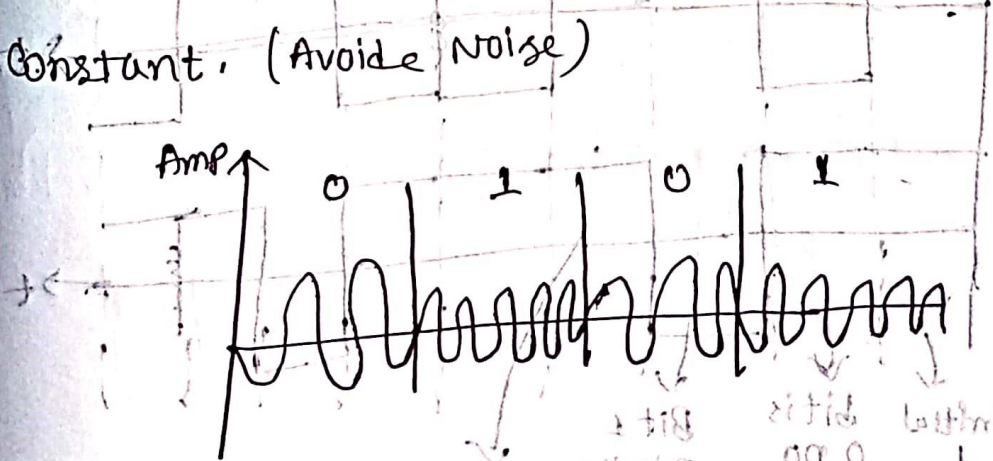 Constant. (Avoide Noise)
Amp
0 1 0 1